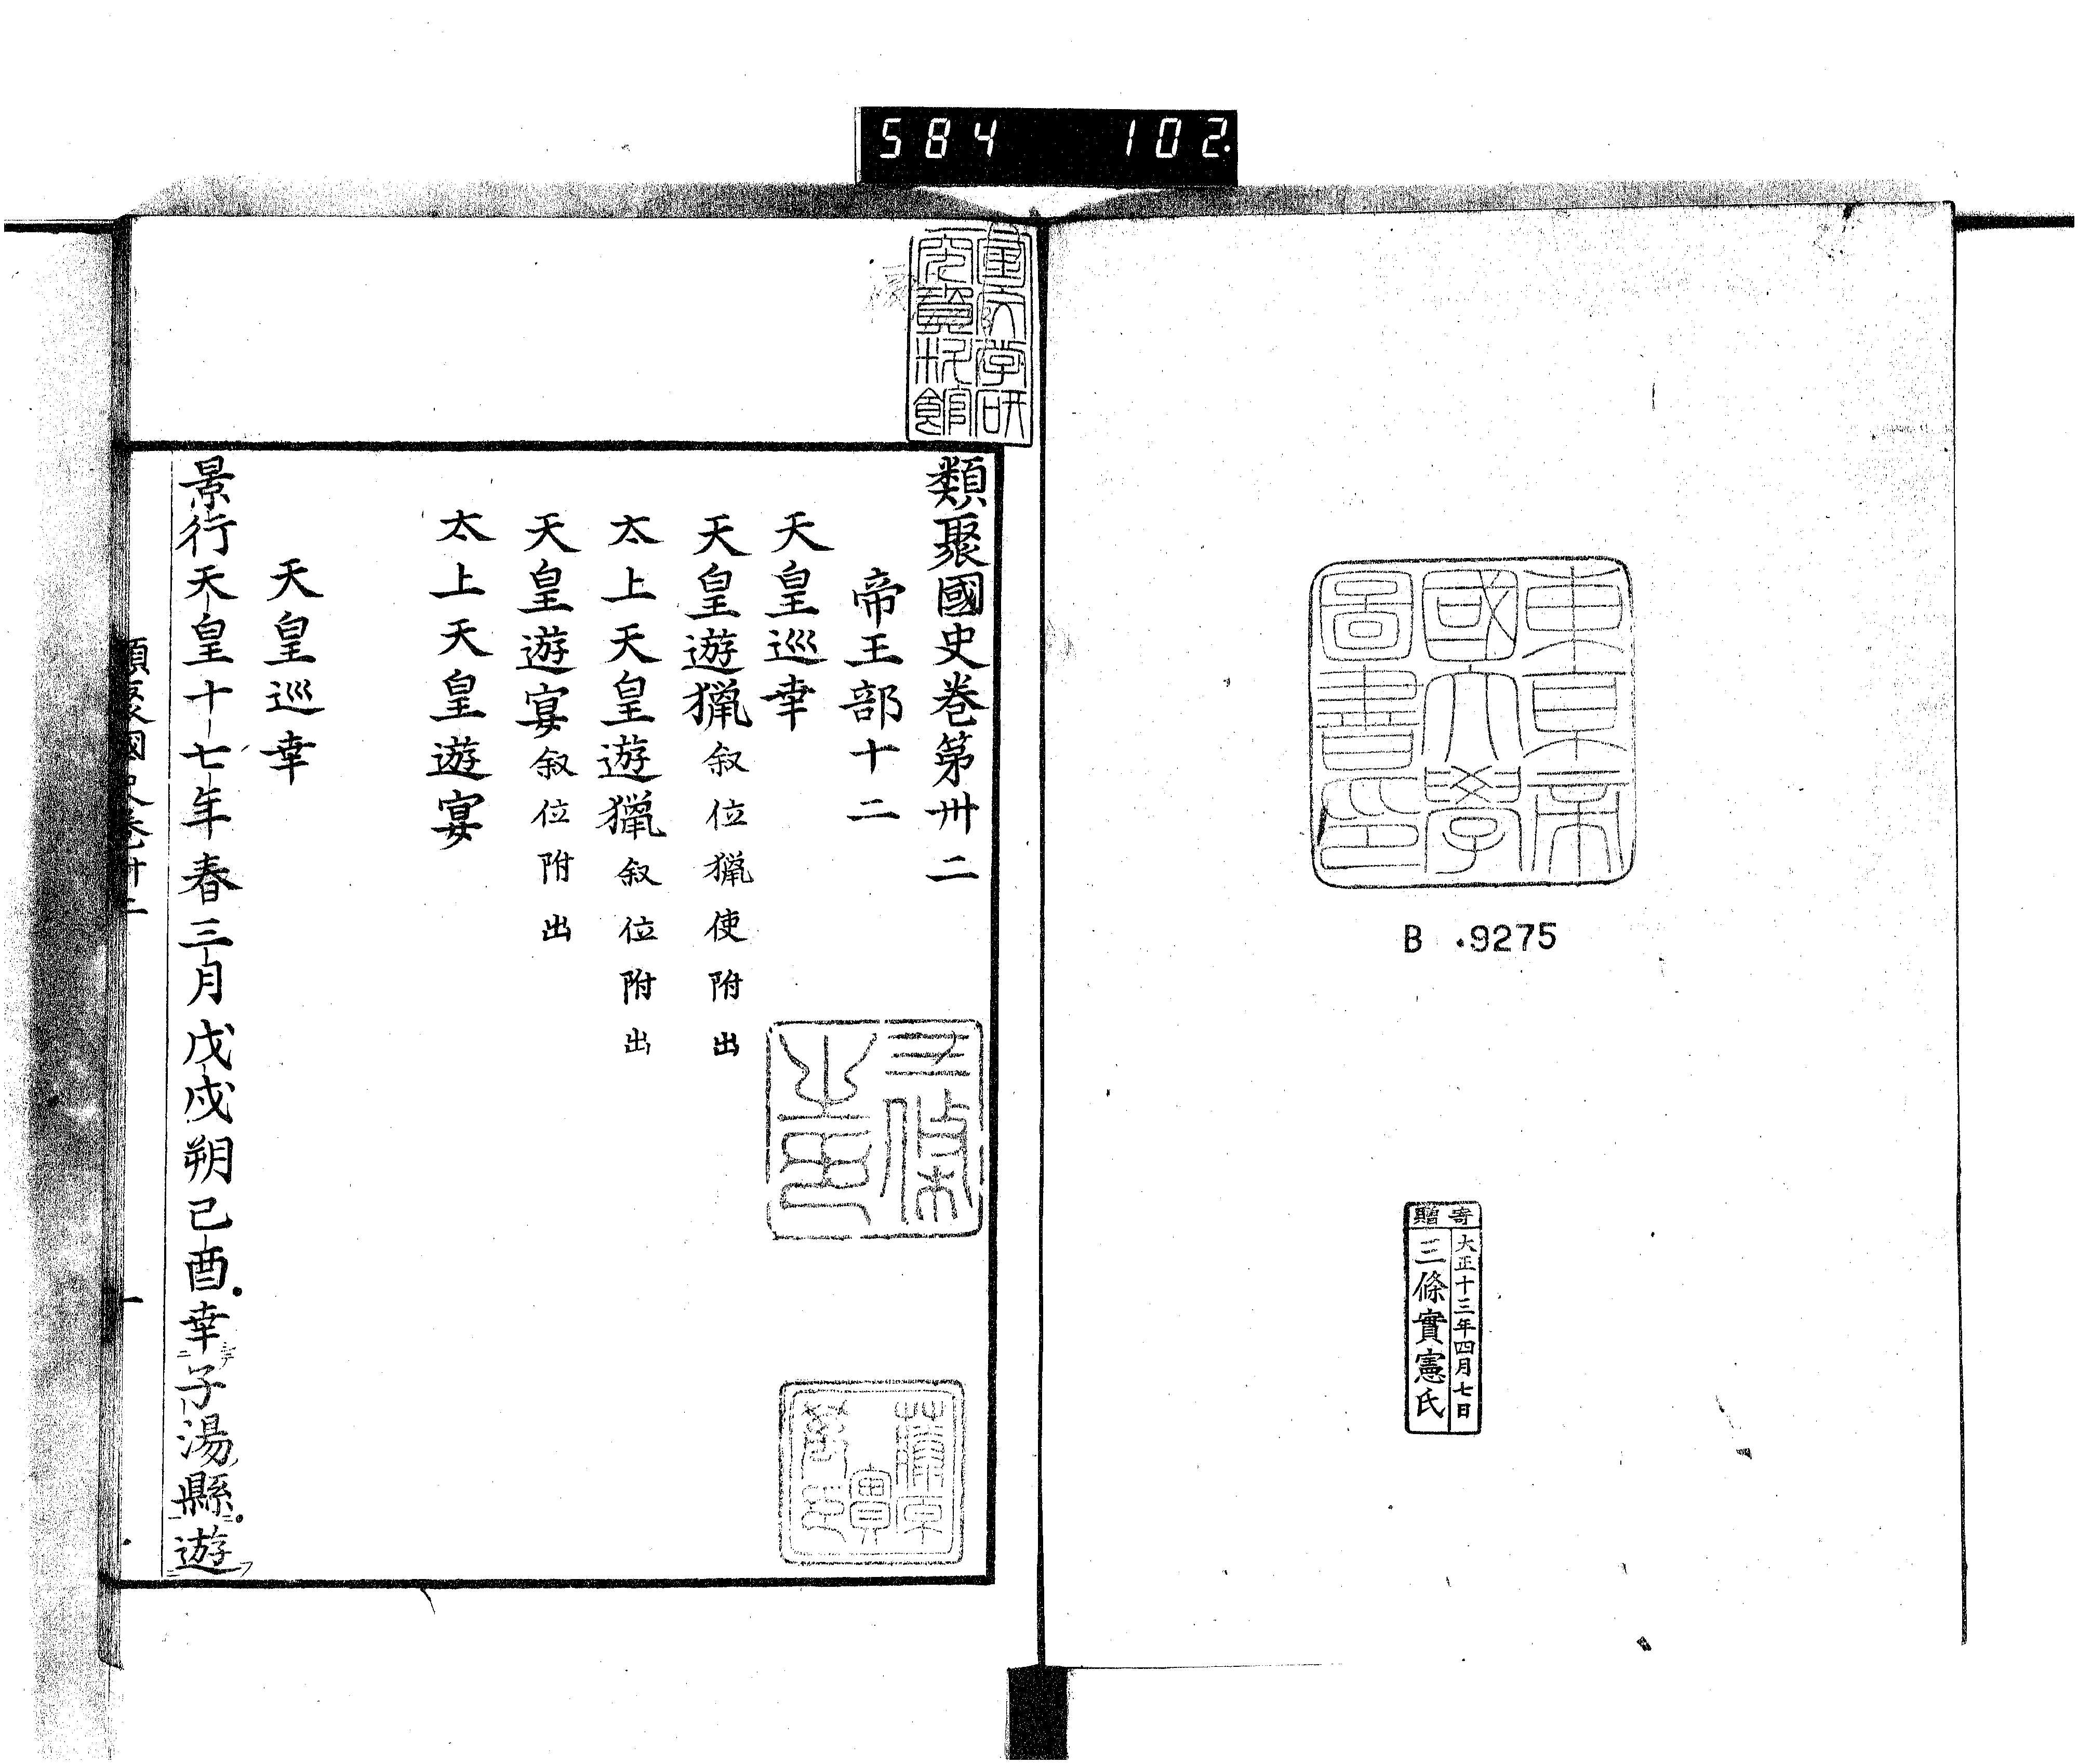 584 102.
東京帝
國大學
圖書印
B .9275
寄贈
大正十三年四月七日
三條實憲氏
類聚國史巻第卅二
帝王部十二
天皇巡幸
天皇遊獵叙位獵使附出
太上天皇遊獵叙位附出
天皇遊宴叙位附出
太上天皇遊宴
天皇巡幸
景行天皇十七年春三月戊戌朔己酉幸子湯縣遊
類聚國史巻卅二
一
文学研
究資料館
三條
藤原
實